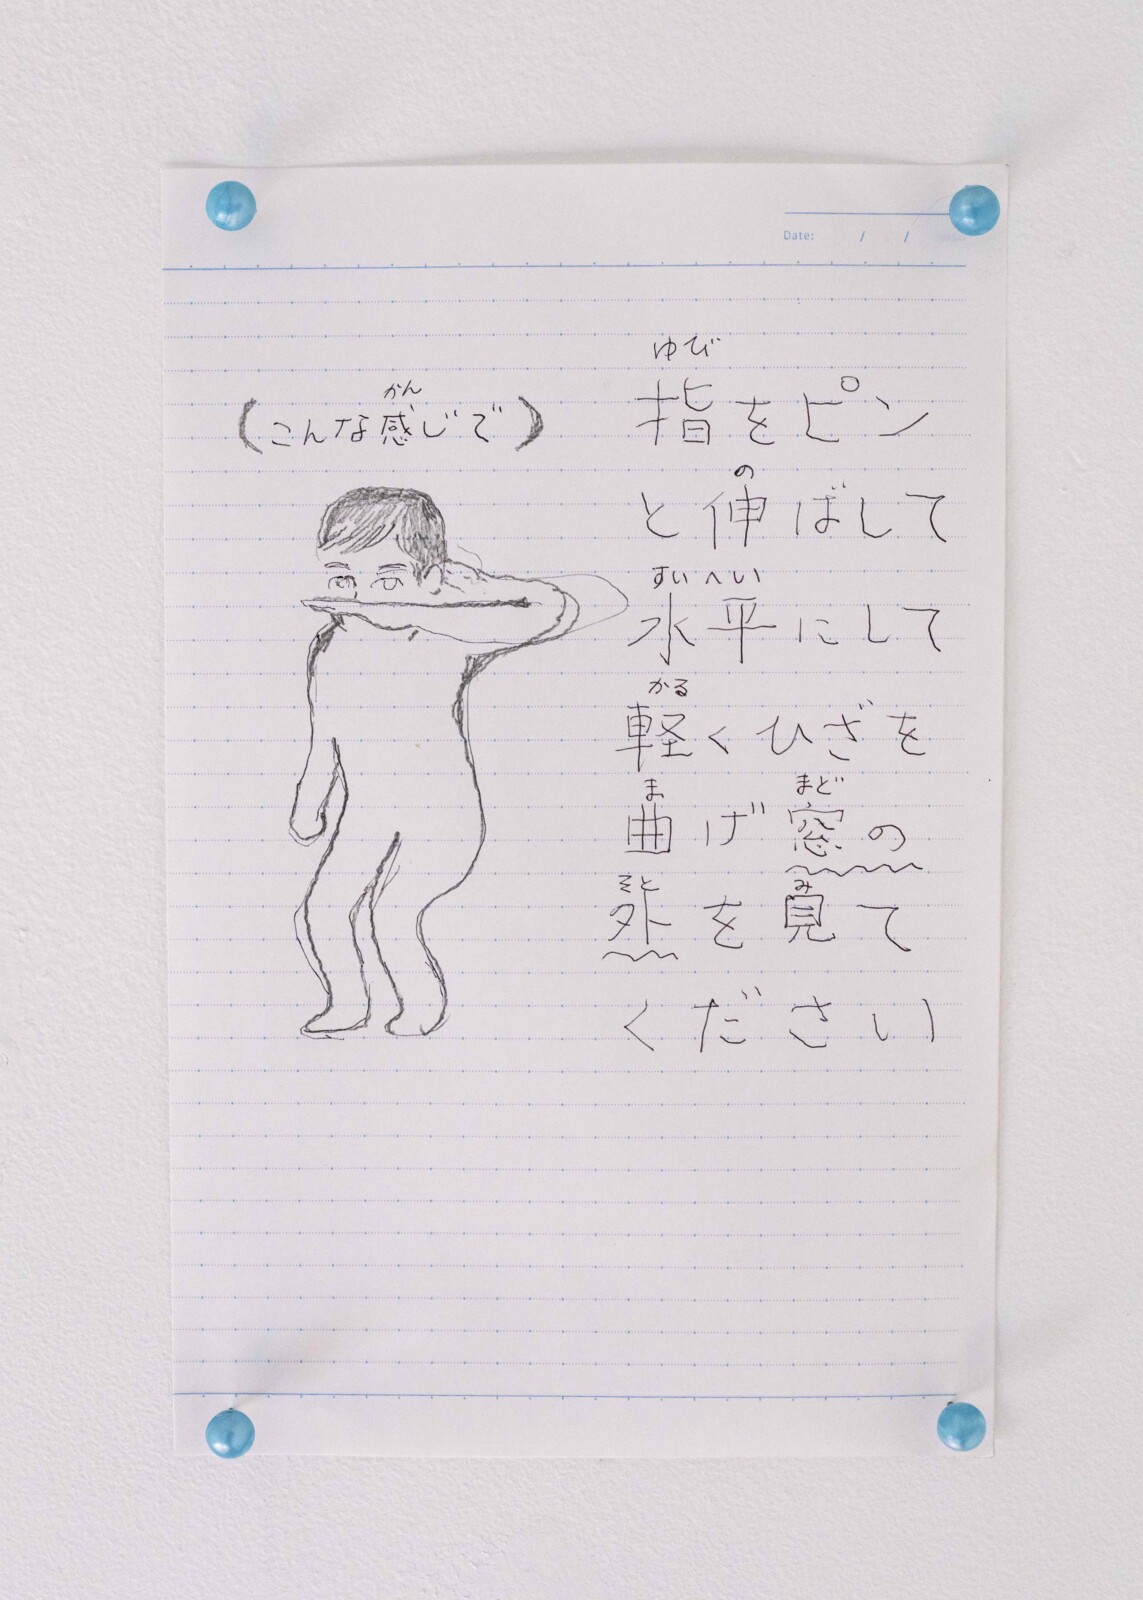 Date: / /
ゆび
指をピン
の
と伸ばして
すいへい
水平にして
かる
軽くひざを
ま まど
曲げ窓の
そと み
外を見て
ください
かん
(こんな感じで)